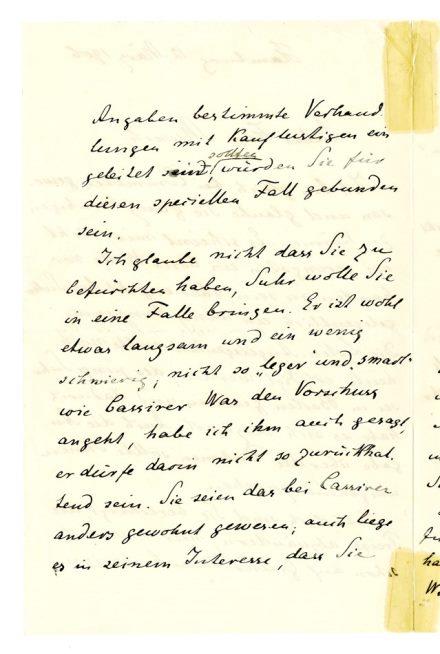 Angaben bestimmte Verhand
lungen mit Kauflustigen ein
sollten
geleitet seind, würden Sie für
diesen speciellen Fall gebunden
sein.
Ich glaube nicht dass Sie zu
befürchten haben, Suhr wolle Sie
in eine Falle bringen. Er ist wohl
etwas langsam und ein wenig
schwierig, nicht so „leger" und „smart"
wie Cassirer Was den Vorschuss
angeht, habe ich ihm auch gesagt,
er dürfe darin nicht so zurückhal
tend sein. Sie seien das bei Cassirer
anders gewohnt gewesen; auch liege
es in seinem Interesse, dass Sie